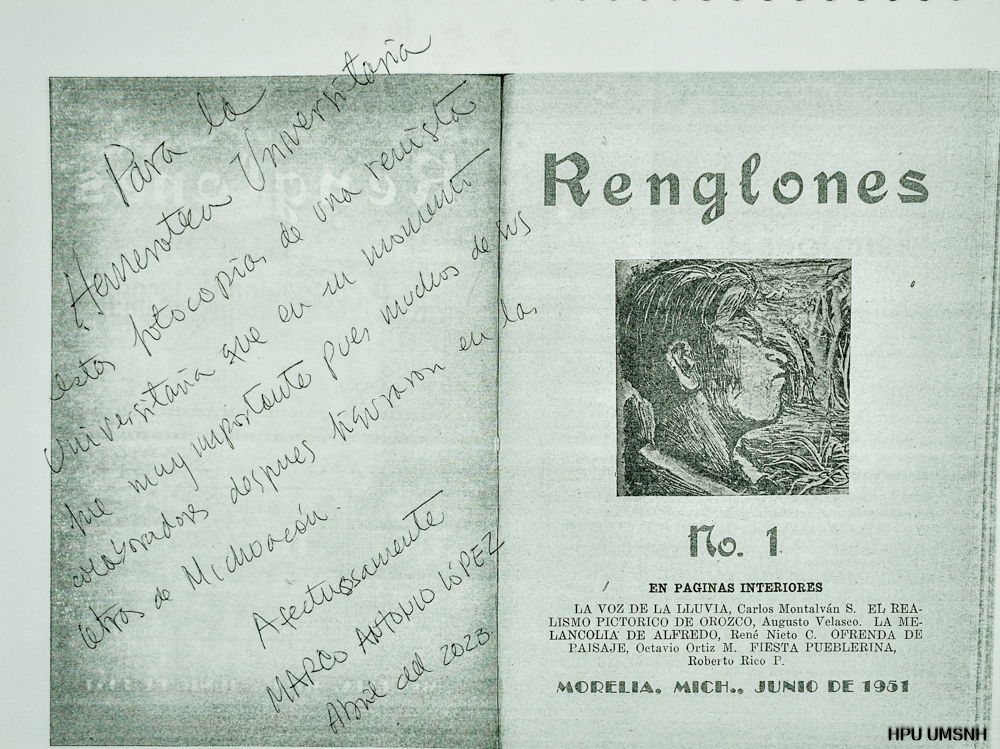 Para la
Hemeroteca Universitaria
estas fotocopias de una revista
Universitaria que en su momento
fue muy importante pues muchos de sus
colaboradores despues figuraron en las
letras de Michoacán.
Afectuosamente
MARCO ANTONIO LÓPEZ
Abril del 2023
Renglones
No. 1
EN PAGINAS INTERIORES
LA VOZ DE LA LLUVIA, Carlos Montalván S. EL REA-
LISMO PICTORICO DE OROZCO, Augusto Velasco. LA ME-
LANCOLIA DE ALFREDO, René Nieto C. OFRENDA DE
PAISAJE, Octavio Ortiz M. FIESTA PUEBLERINA,
Roberto Rico P.
MORELIA, MICH., JUNIO DE 1951
HPU UMSNH